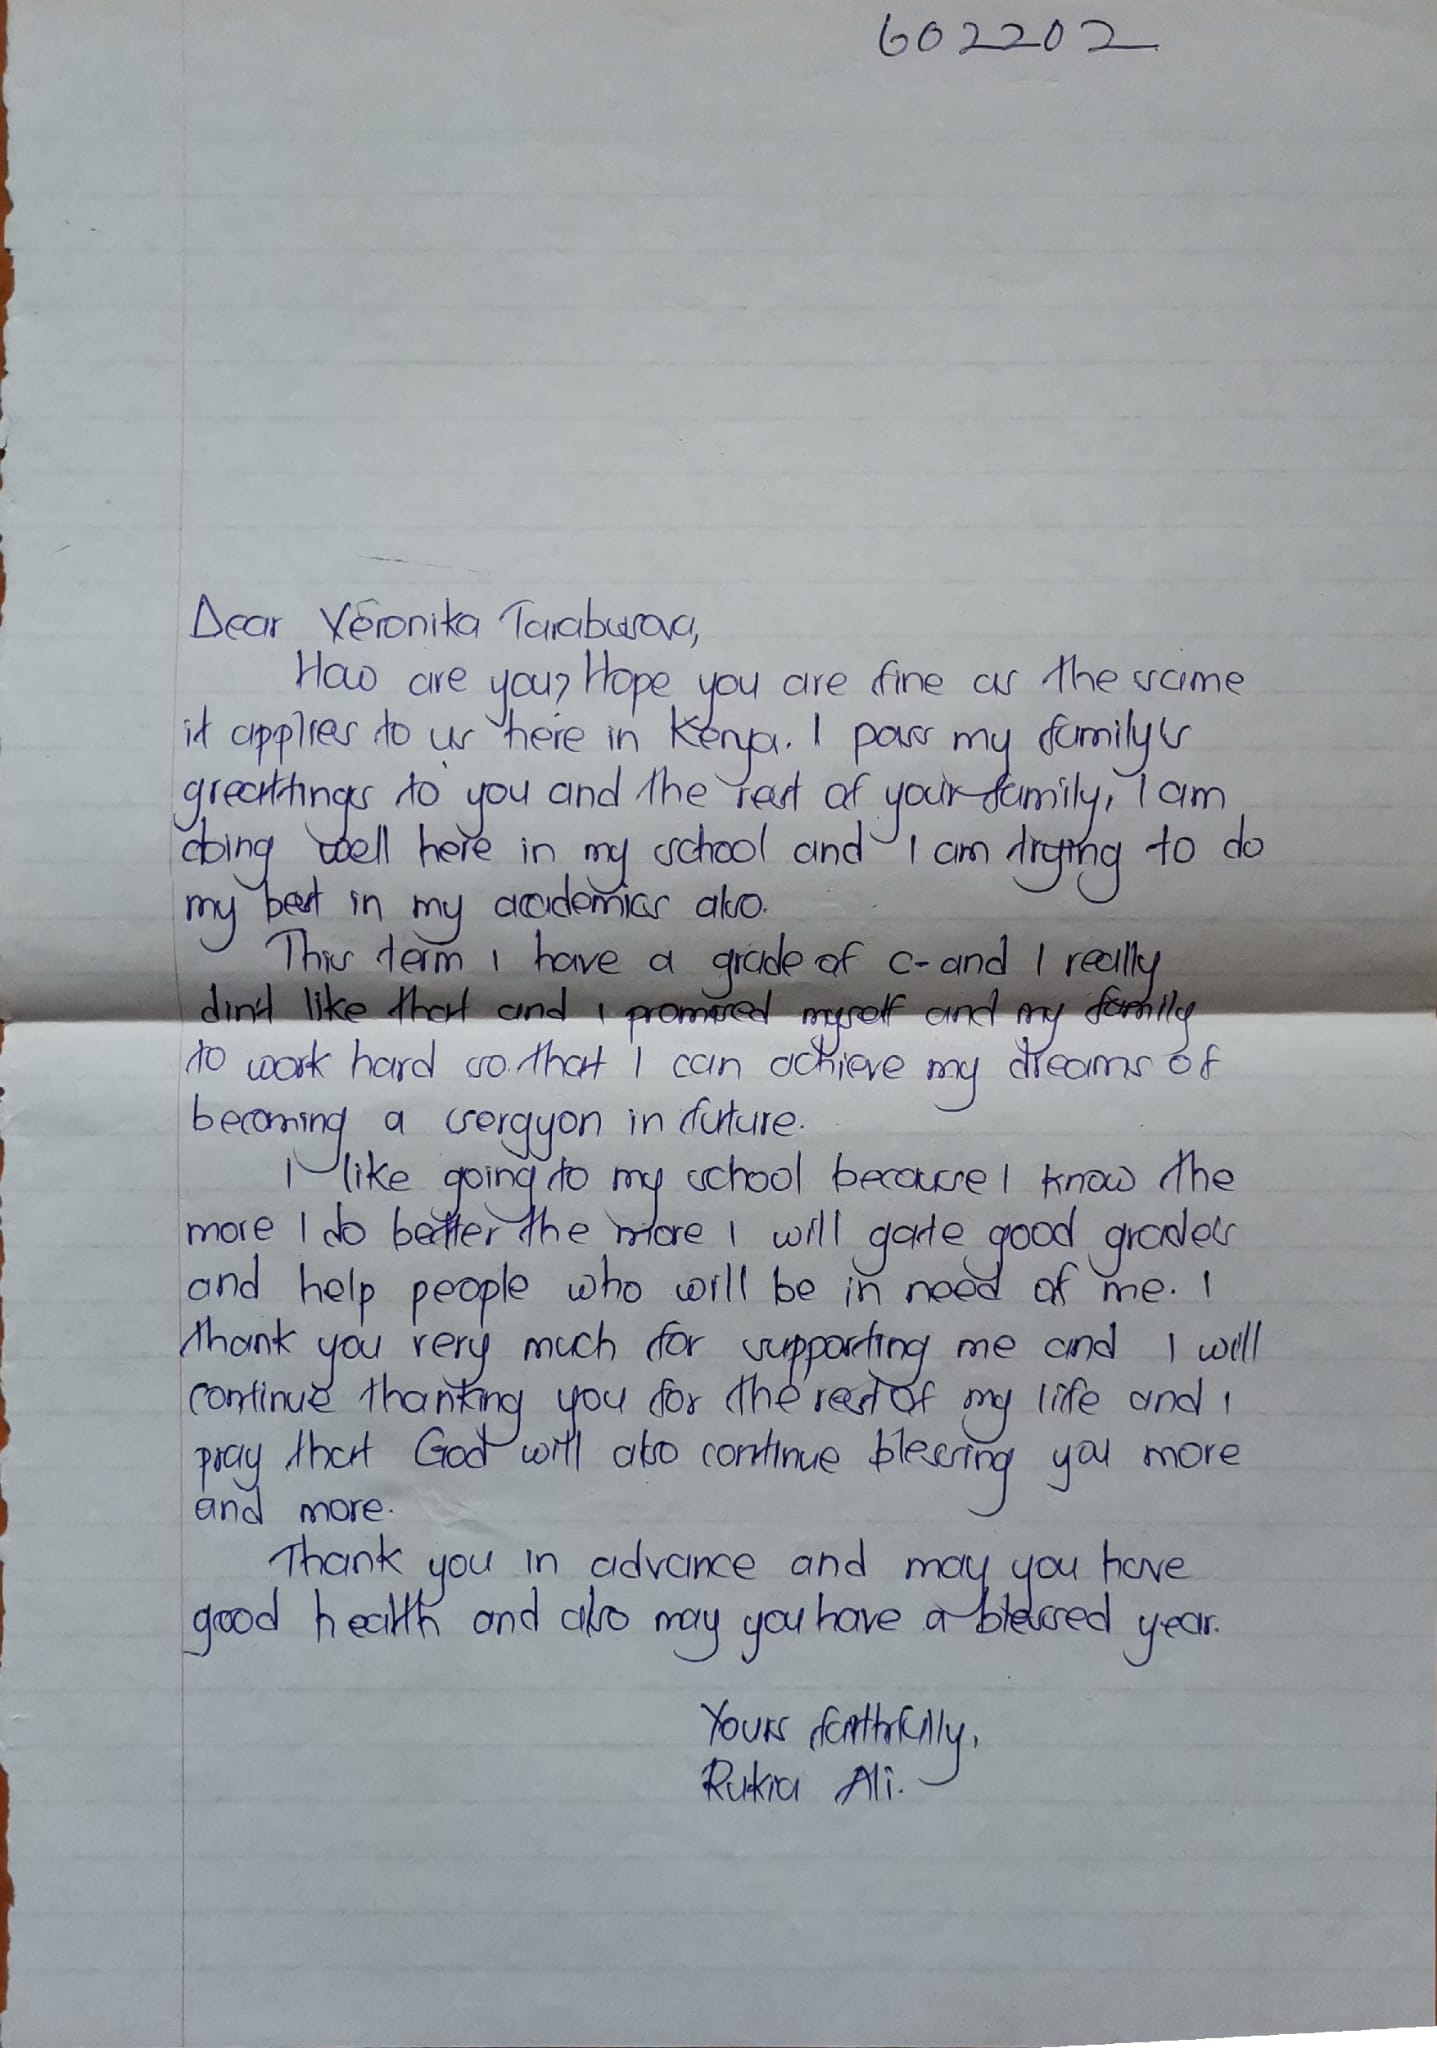 602202
Dear Veronika Taraburova,
How are you? Hope you are fine as the same
it applies to us here in Kenya. I pass my family's
greattings to you and the rest of your family, I am
doing well here in my school and I am trying to do
my best in my academics also.
This term I have a grade of C- and I really
din't like that and I promised myself and my family
to work hard so that I can achieve my dreams of
becoming a sergyon in future.
I like going to my school because I know the
more I do better the more I will gate good grades
and help people who will be in need of me. I
thank you very much for supporting me and I will
continue thanking you for the rest of my life and I
pray that God will also continue blessing you more
and more.
Thank you in advance and may you have
good health and also may you have a blessed year.
Yours faithfully,
Rukia Ali.